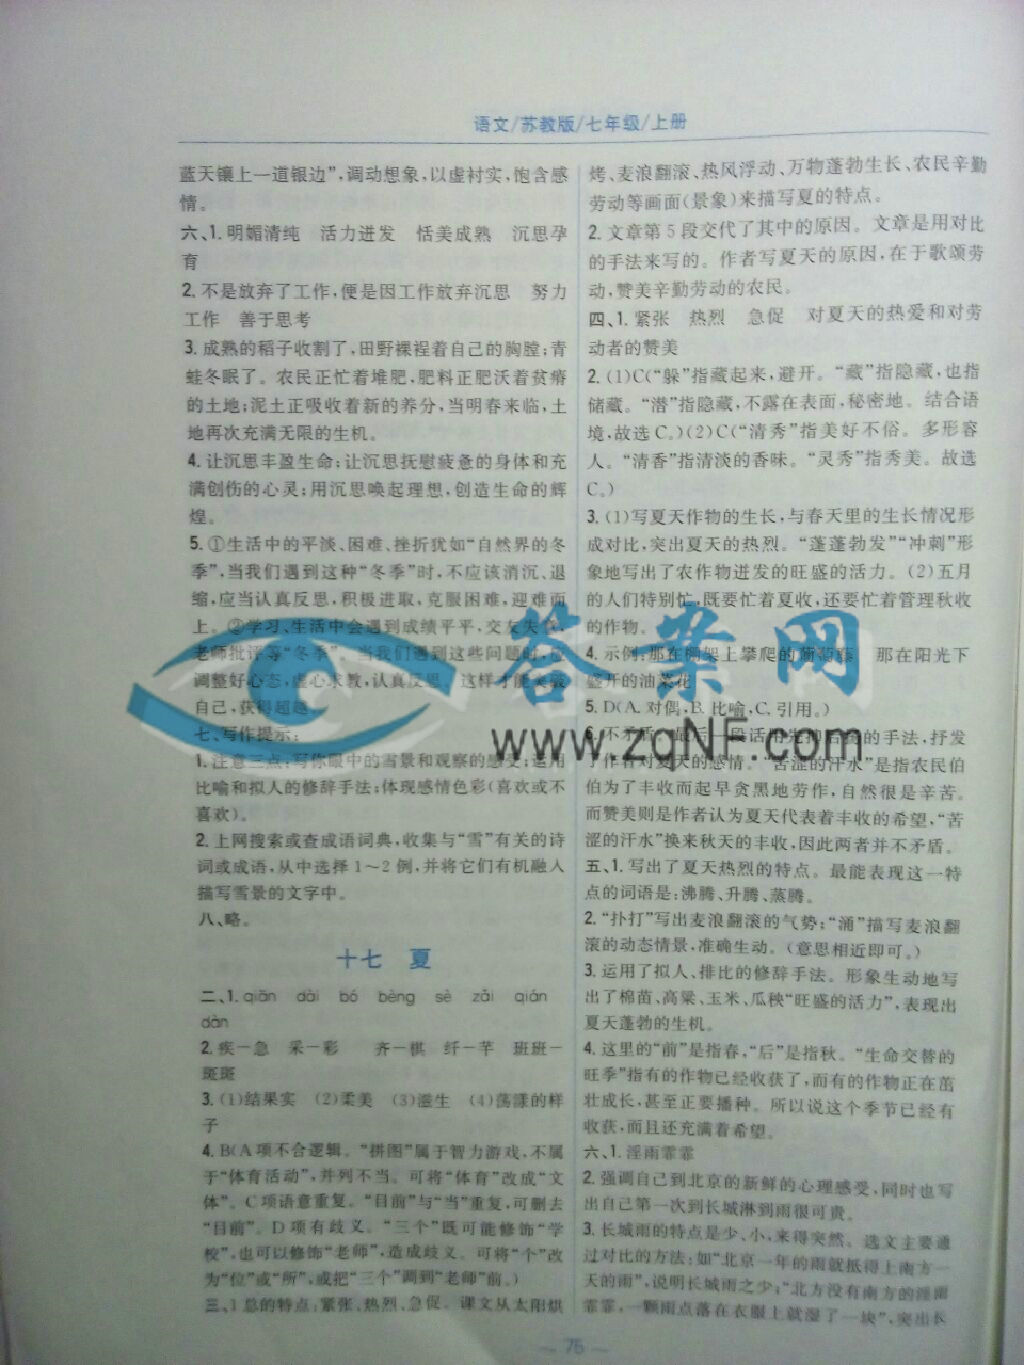 语文/苏教版/七年级/上册
蓝天镶上一道银边”,调动想象,以虚衬实,饱含感
情。
六、1. 明媚清纯　活力迸发　恬美成熟　沉思孕
育
2. 不是放弃了工作,便是因工作放弃沉思　努力
工作　善于思考
3. 成熟的稻子收割了,田野裸裎着自己的胸膛;青
蛙冬眠了。农民正忙着堆肥,肥料正肥沃着贫瘠
的土地;泥土正吸收着新的养分,当明春来临,土
地再次充满无限的生机。
4. 让沉思丰盈生命;让沉思抚慰疲惫的身体和充
满创伤的心灵;用沉思唤起理想,创造生命的辉
煌。
5. ①生活中的平淡、困难、挫折犹如“自然界的冬
季”,当我们遇到这种“冬季”时,不应该消沉、退
缩,应当认真反思,积极进取,克服困难,迎难而
上。②学习、生活中会遇到成绩平平,交友失
老师批评等“冬季”,当我们遇到这些问题时,应
调整好心态,虚心求教,认真反思,这样才能突破
自己,获得超越
七、写作提示:
1. 注意三点:写你眼中的雪景和观察的感受;运用
比喻和拟人的修辞手法;体现感情色彩(喜欢或不
喜欢)。
2. 上网搜索或查成语词典,收集与“雪”有关的诗
词或成语,从中选择1~2例,并将它们有机融入
描写雪景的文字中。
八、略。
十七　夏
二、1. qiān　dài　bó　bèng　sè　zǎi　qián
dàn
2. 疾—急　采—彩　齐—棋　纤—芊　班班—
斑斑
3. (1)结果实　(2)柔美　(3)滋生　(4)荡漾的样
子
4. B(A项不合逻辑。“拼图”属于智力游戏,不属
于“体育活动”,并列不当。可将“体育”改成“文
体”。C项语意重复。“目前”与“当”重复,可删去
“目前”。D项有歧义。“三个”既可能修饰“学
校”,也可以修饰“老师”,造成歧义。可将“个”改
为“位”或“所”,或把“三个”调到“老师”前。)
三、1 总的特点:紧张、热烈、急促。课文从太阳烘
烤、麦浪翻滚、热风浮动、万物蓬勃生长、农民辛勤
劳动等画面(景象)来描写夏的特点。
2. 文章第5段交代了其中的原因。文章是用对比
的手法来写的。作者写夏天的原因,在于歌颂劳
动,赞美辛勤劳动的农民。
四、1. 紧张　热烈　急促　对夏天的热爱和对劳
动者的赞美
2. (1)C(“躲”指藏起来,避开。“藏”指隐藏,也指
储藏。“潜”指隐藏,不露在表面,秘密地。结合语
境,故选C。)(2)C(“清秀”指美好不俗。多形容
人。“清香”指清淡的香味。“灵秀”指秀美。故选
C。)
3. (1)写夏天作物的生长,与春天里的生长情况形
成对比,突出夏天的热烈。“蓬蓬勃发”“冲刺”形
象地写出了农作物迸发的旺盛的活力。(2)五月
的人们特别忙,既要忙着夏收,还要忙着管理秋收
的作物。
4. 示例:那在棚架上攀爬的葡萄藤　那在阳光下
盛开的油菜花
5. D(A. 对偶,B. 比喻,C. 引用。)
6. 不矛盾。最后一段话用先抑后扬的手法,抒发
了作者对夏天的感情。“苦涩的汗水”是指农民伯
伯为了丰收而起早贪黑地劳作,自然很是辛苦。
而赞美则是作者认为夏天代表着丰收的希望,“苦
涩的汗水”换来秋天的丰收,因此两者并不矛盾。
五、1. 写出了夏天热烈的特点。最能表现这一特
点的词语是:沸腾、升腾、蒸腾。
2. “扑打”写出麦浪翻滚的气势;“涌”描写麦浪翻
滚的动态情景,准确生动。(意思相近即可。)
3. 运用了拟人、排比的修辞手法。形象生动地写
出了棉苗、高粱、玉米、瓜秧“旺盛的活力”,表现出
夏天蓬勃的生机。
4. 这里的“前”是指春,“后”是指秋。“生命交替的
旺季”指有的作物已经收获了,而有的作物正在茁
壮成长,甚至正要播种。所以说这个季节已经有
收获,而且还充满着希望。
六、1. 淫雨霏霏
2. 强调自己到北京的新鲜的心理感受,同时也写
出自己第一次到长城淋到雨很可贵。
3. 长城雨的特点是少、小,来得突然。选文主要通
过对比的方法:如“北京一年的雨就抵得上南方一
天的雨”,说明长城雨之少;“北方没有南方的淫雨
霏霏,一颗雨点落在衣服上就湿了一块”,突出长
答案网
www.zqNF.com
— 76 —